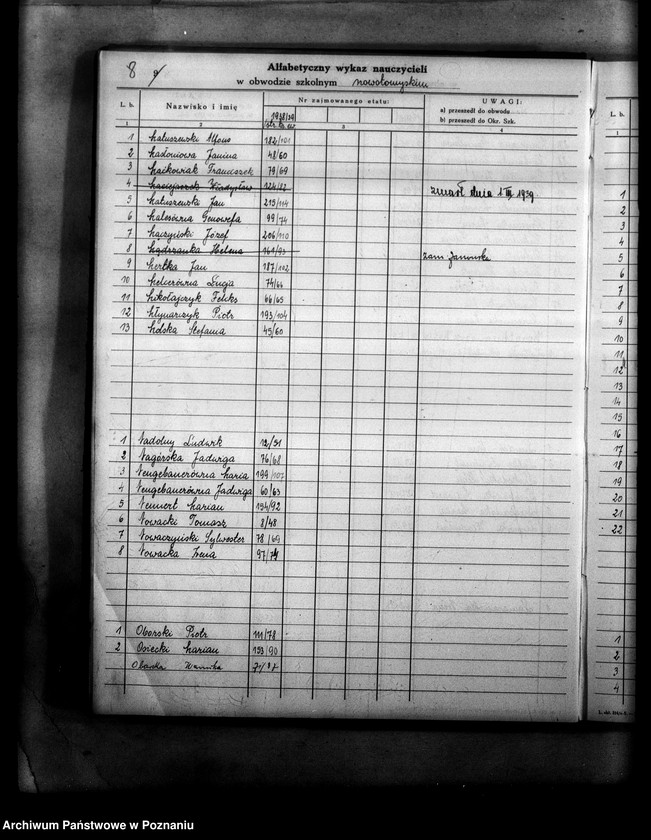 8
Alfabetyczny wykaz nauczycieli
w obwodzie szkolnym nowotomyskim
L. b. Nazwisko i imię Nr zajmowanego etatu: UWAGI:
a) przeszedł do obwodu
b) przeszedł do Okr. Szk.
1938/39
1 2 3 4
1 Matuszewski Alfons 182/101
2 Masłoniowa Janina 48/60
3 Maćkowiak Franciszek 79/69
4 Maciejaszek Władysław 124/82 zmarł dnia 1 III 1939
5 Matuszewski Jan 215/114
6 Malesówna Genowefa 99/74
7 Maczyński Józef 206/110
8 Mądrzanka Helena 161/95 zam Janowska
9 Mertka Jan 187/102
10 Melcerówna Łucja 74/66
11 Mikołajczyk Feliks 66/65
12 Młynarczyk Piotr 193/104
13 Molska Stefania 45/60
1 Nadolny Ludwik 12/51
2 Nagórska Jadwiga 76/68
3 Neugebauerówna Maria 199/107
4 Neugebauerówna Jadwiga 60/63
5 Neumert Marian 154/92
6 Nowacki Tomasz 8/48
7 Nowaczyński Sylwester 78/69
8 Nowacka Irena 97/74
1 Oborski Piotr 111/78
2 Osiecki Marian 153/90
L. b.
1
1
2
3
4
5
6
7
8
9
10
11
12
13
14
15
16
17
18
19
20
21
22
1
2
3
4
Archiwum Państwowe w Poznaniu